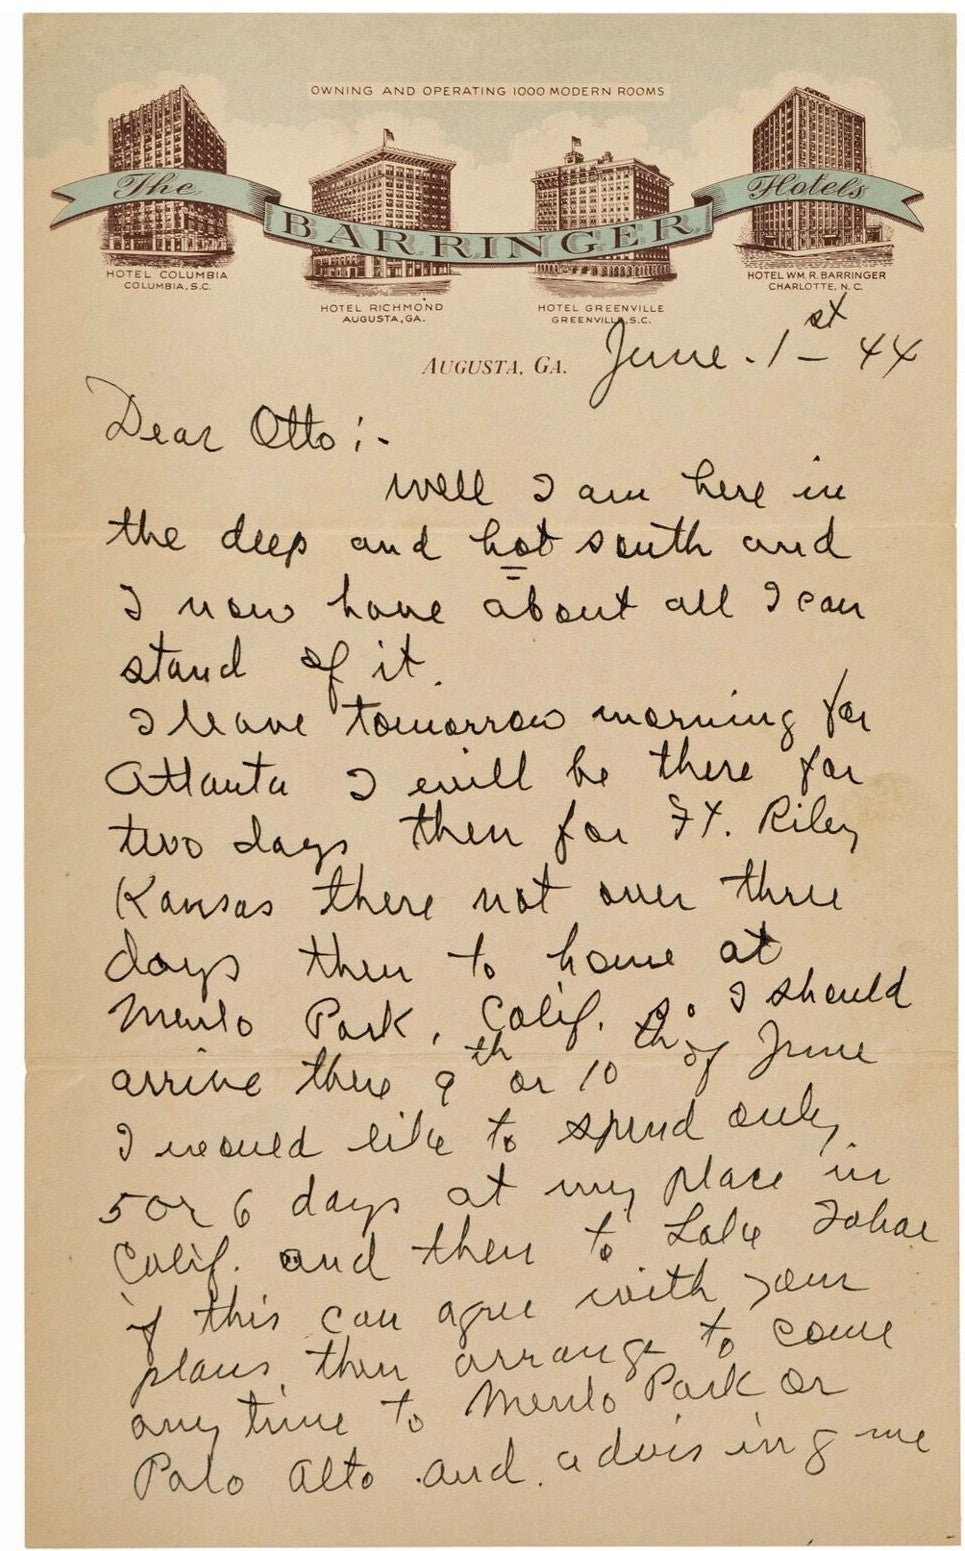 OWNING AND OPERATING 1000 MODERN ROOMS
The BARRINGER Hotels
HOTEL COLUMBIA
COLUMBIA, S.C.
HOTEL RICHMOND
AUGUSTA, GA.
HOTEL GREENVILLE
GREENVILLE, S.C.
HOTEL WM. R. BARRINGER
CHARLOTTE, N. C.
AUGUSTA, GA. June - 1st 44
Dear Otto :-
well I am here in
the deep and hot south and
I now have about all I can
stand of it.
I leave tomorrow morning for
Atlanta I will be there for
two days then for Ft. Riley
Kansas there not over three
days then to home at
Menlo Park, Calif. so I should
arrive there 9th or 10th of June
I would like to spend only
5 or 6 days at my place in
Calif. and then to Lake Tahoe
if this can agree with your
plans, then arrange to come
any time to Menlo Park or
Palo Alto and advising me